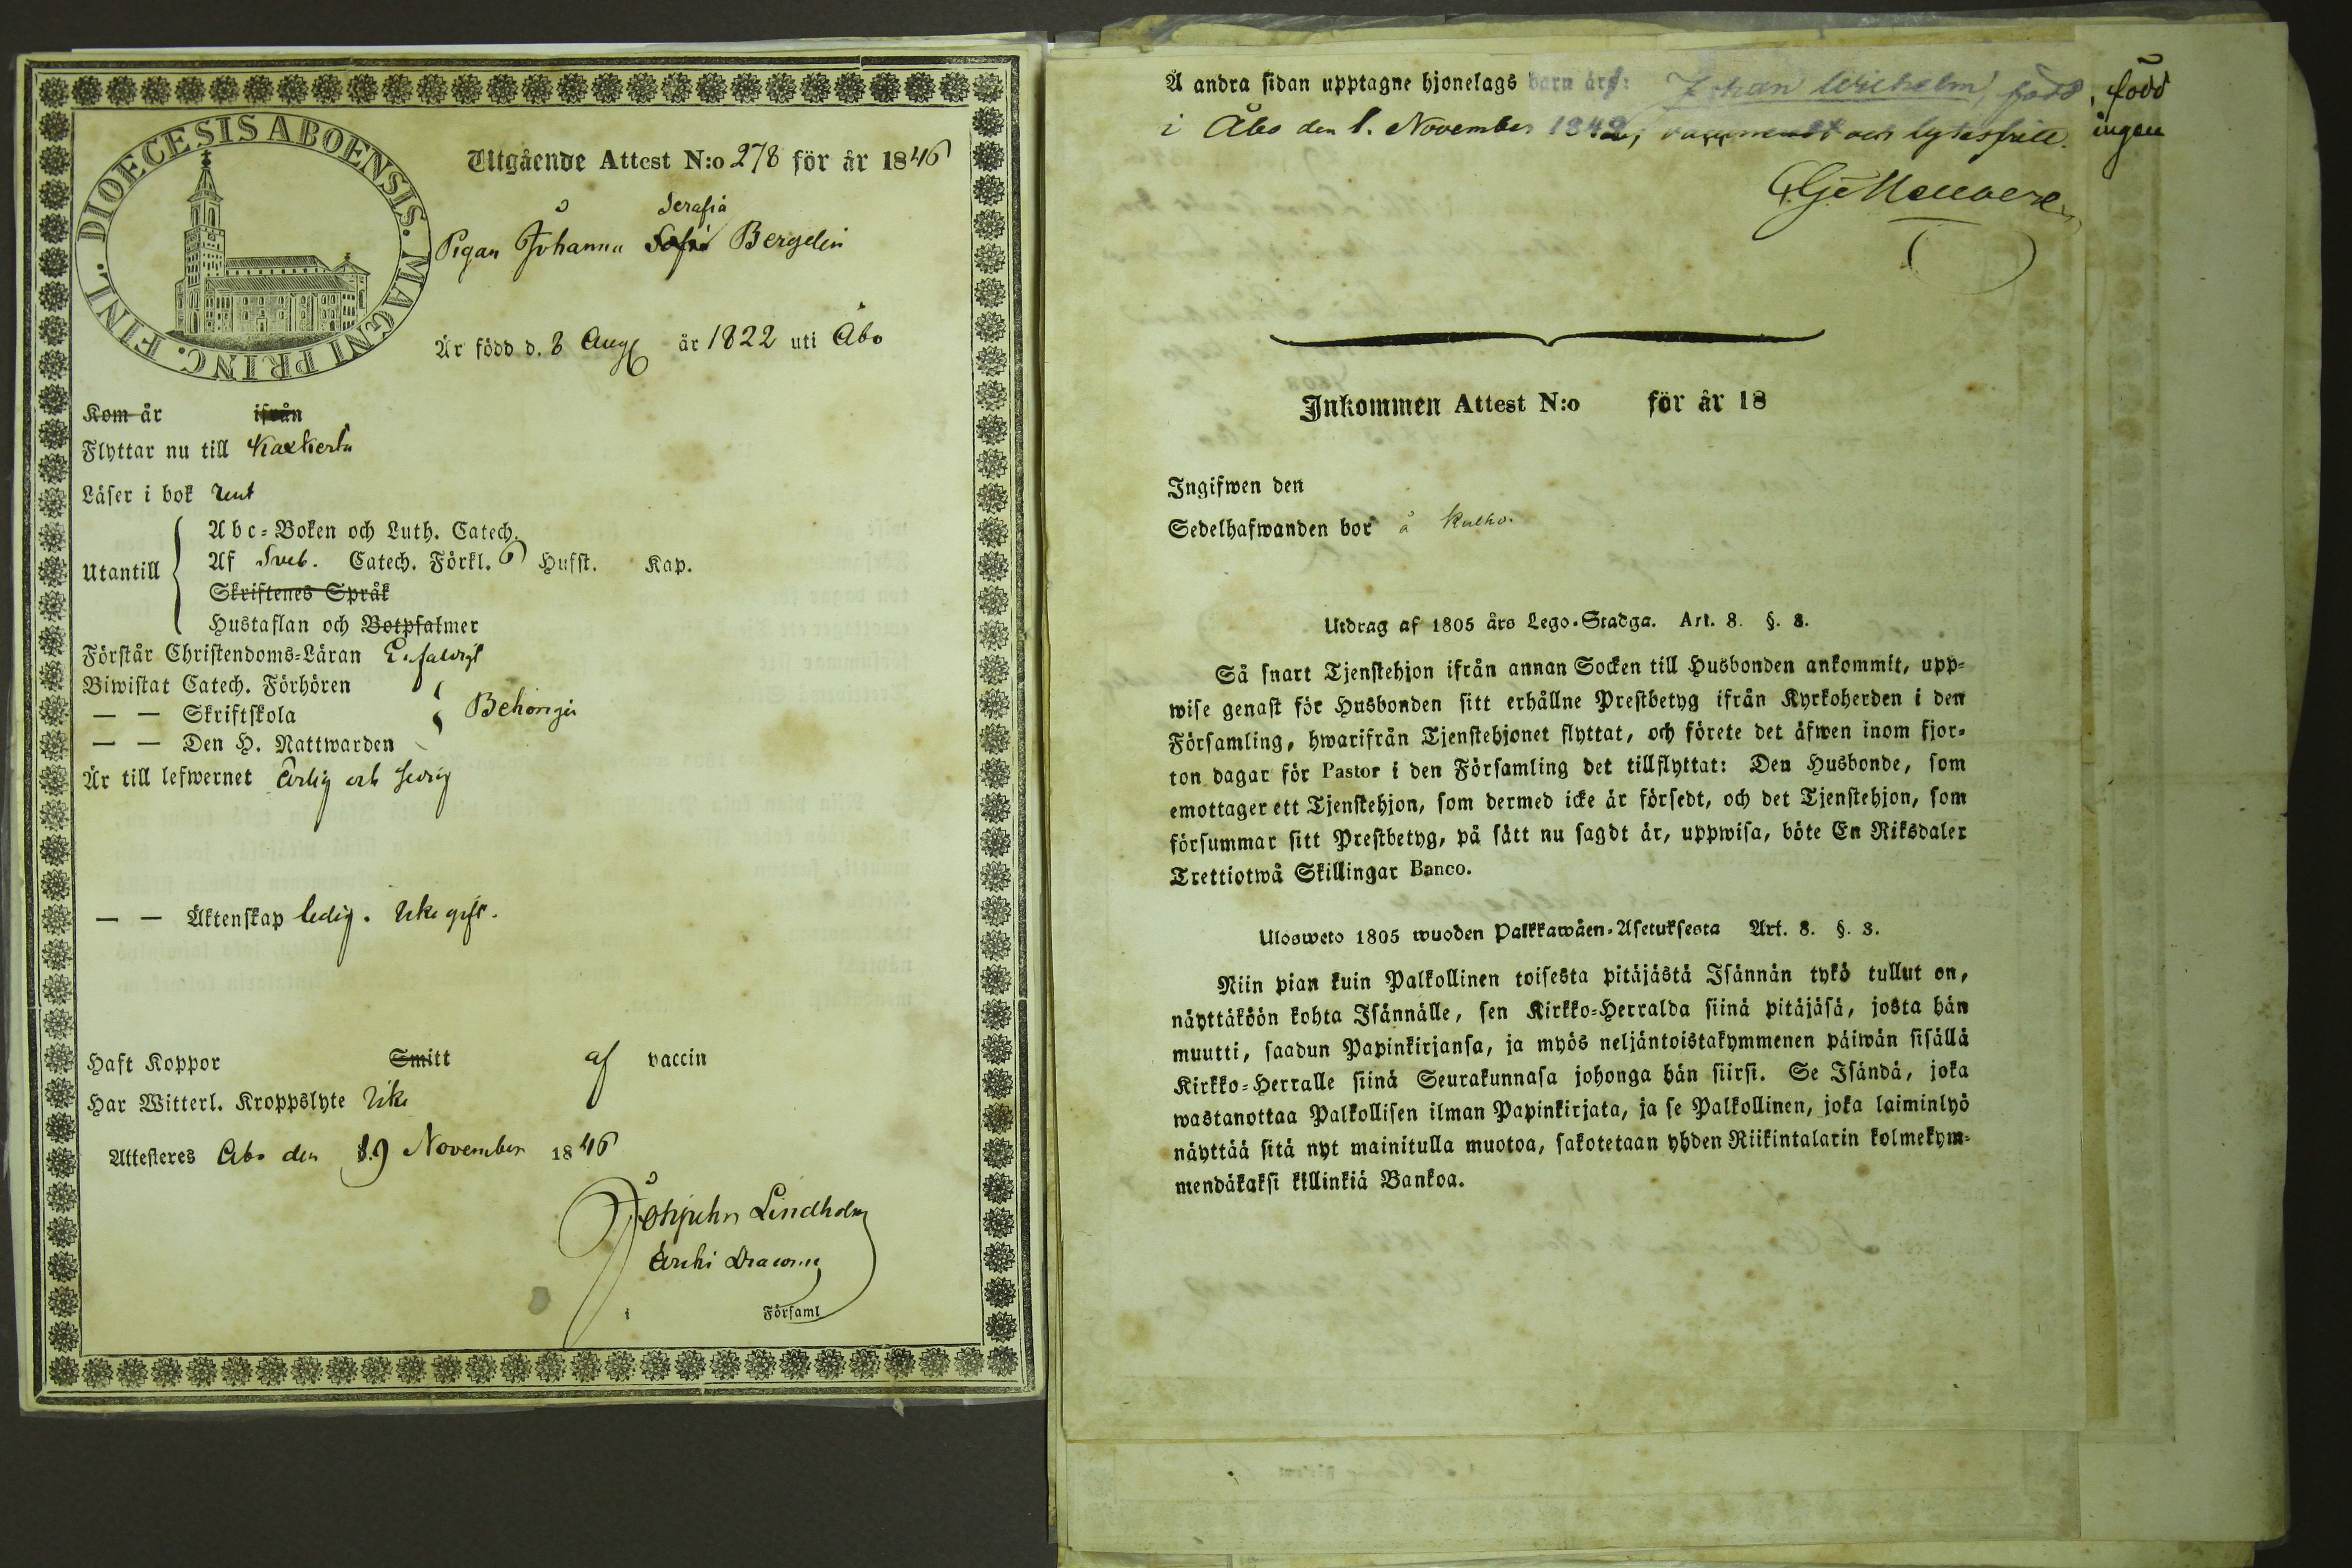 DIOECESIS ABOENSIS. MAGNI PRINC. FINL.
Utgående Attest N:o 278 för år 1846
Serafia
Pigan Johanna Sofia Bergelin
Är född d. 8 Aug år 1822 uti Åbo
Kom år ifrån
Flyttar nu till Kakskerta
Läser i bok rent
Utantill
Abc-Boken och Luth. Catech.
Af Sveb. Catech. Förkl. 6 Hufst. Kap.
Skriftenes Språk
Hustaflan och Botpsalmer
Förstår Christendoms-Läran Enfaldigt
Biwistat Catech. Förhören
— — Skriftskola
Behörigen
— — Den H. Nattwarden
Är till lefwernet ärlig och sedig
— — Äktenskap ledig. Icke gift.
Haft Koppor Smitt af vaccin
Har Witterl. Kroppslyte Icke
Attesteres Åbo den 19 November 1846
Lindholm
Archi Diaconus
i Församl
Å andra sidan upptagne hjonelags barn är: Johan Wilhelm, född
i Åbo den 1. November 1842; och lytesfri
född
ingen
Inkommen Attest N:o för år 18
Ingifwen den
Sedelhafwanden bor å Kulho.
Utdrag af 1805 års Lego-Stadga. Art. 8. §. 3.
Så snart Tjenstehjon ifrån annan Socken till Husbonden ankommit, upp-
wise genast för Husbonden sitt erhållne Prestbetyg ifrån Kyrkoherden i den
Församling, hwarifrån Tjenstehjonet flyttat, och förete det äfwen inom fjor-
ton dagar för Pastor i den Församling det tillflyttat: Den Husbonde, som
emottager ett Tjenstehjon, som dermed icke är försedt, och det Tjenstehjon, som
försummar sitt Prestbetyg, på sätt nu sagdt är, uppwisa, böte En Riksdaler
Trettiotwå Skillingar Banco.
Ulosweto 1805 wuoden Palkkawäen-Asetuksesta Art. 8. §. 3.
Niin pian kuin Palkollinen toisesta pitäjästä Isännän tykö tullut on,
näyttäköön kohta Isännälle, sen Kirkko-Herralda siinä pitäjäsä, josta hän
muutti, saadun Papinkirjansa, ja myös neljäntoistakymmenen päiwän sisällä
Kirkko-Herralle siinä Seurakunnasa johonga hän siirsi. Se Isändä, joka
wastanottaa Palkollisen ilman Papinkirjata, ja se Palkollinen, joka laiminlyö
näyttää sitä nyt mainitulla muotoa, sakotetaan yhden Riikintalarin kolmekym-
mendäkaksi killinkiä Bankoa.